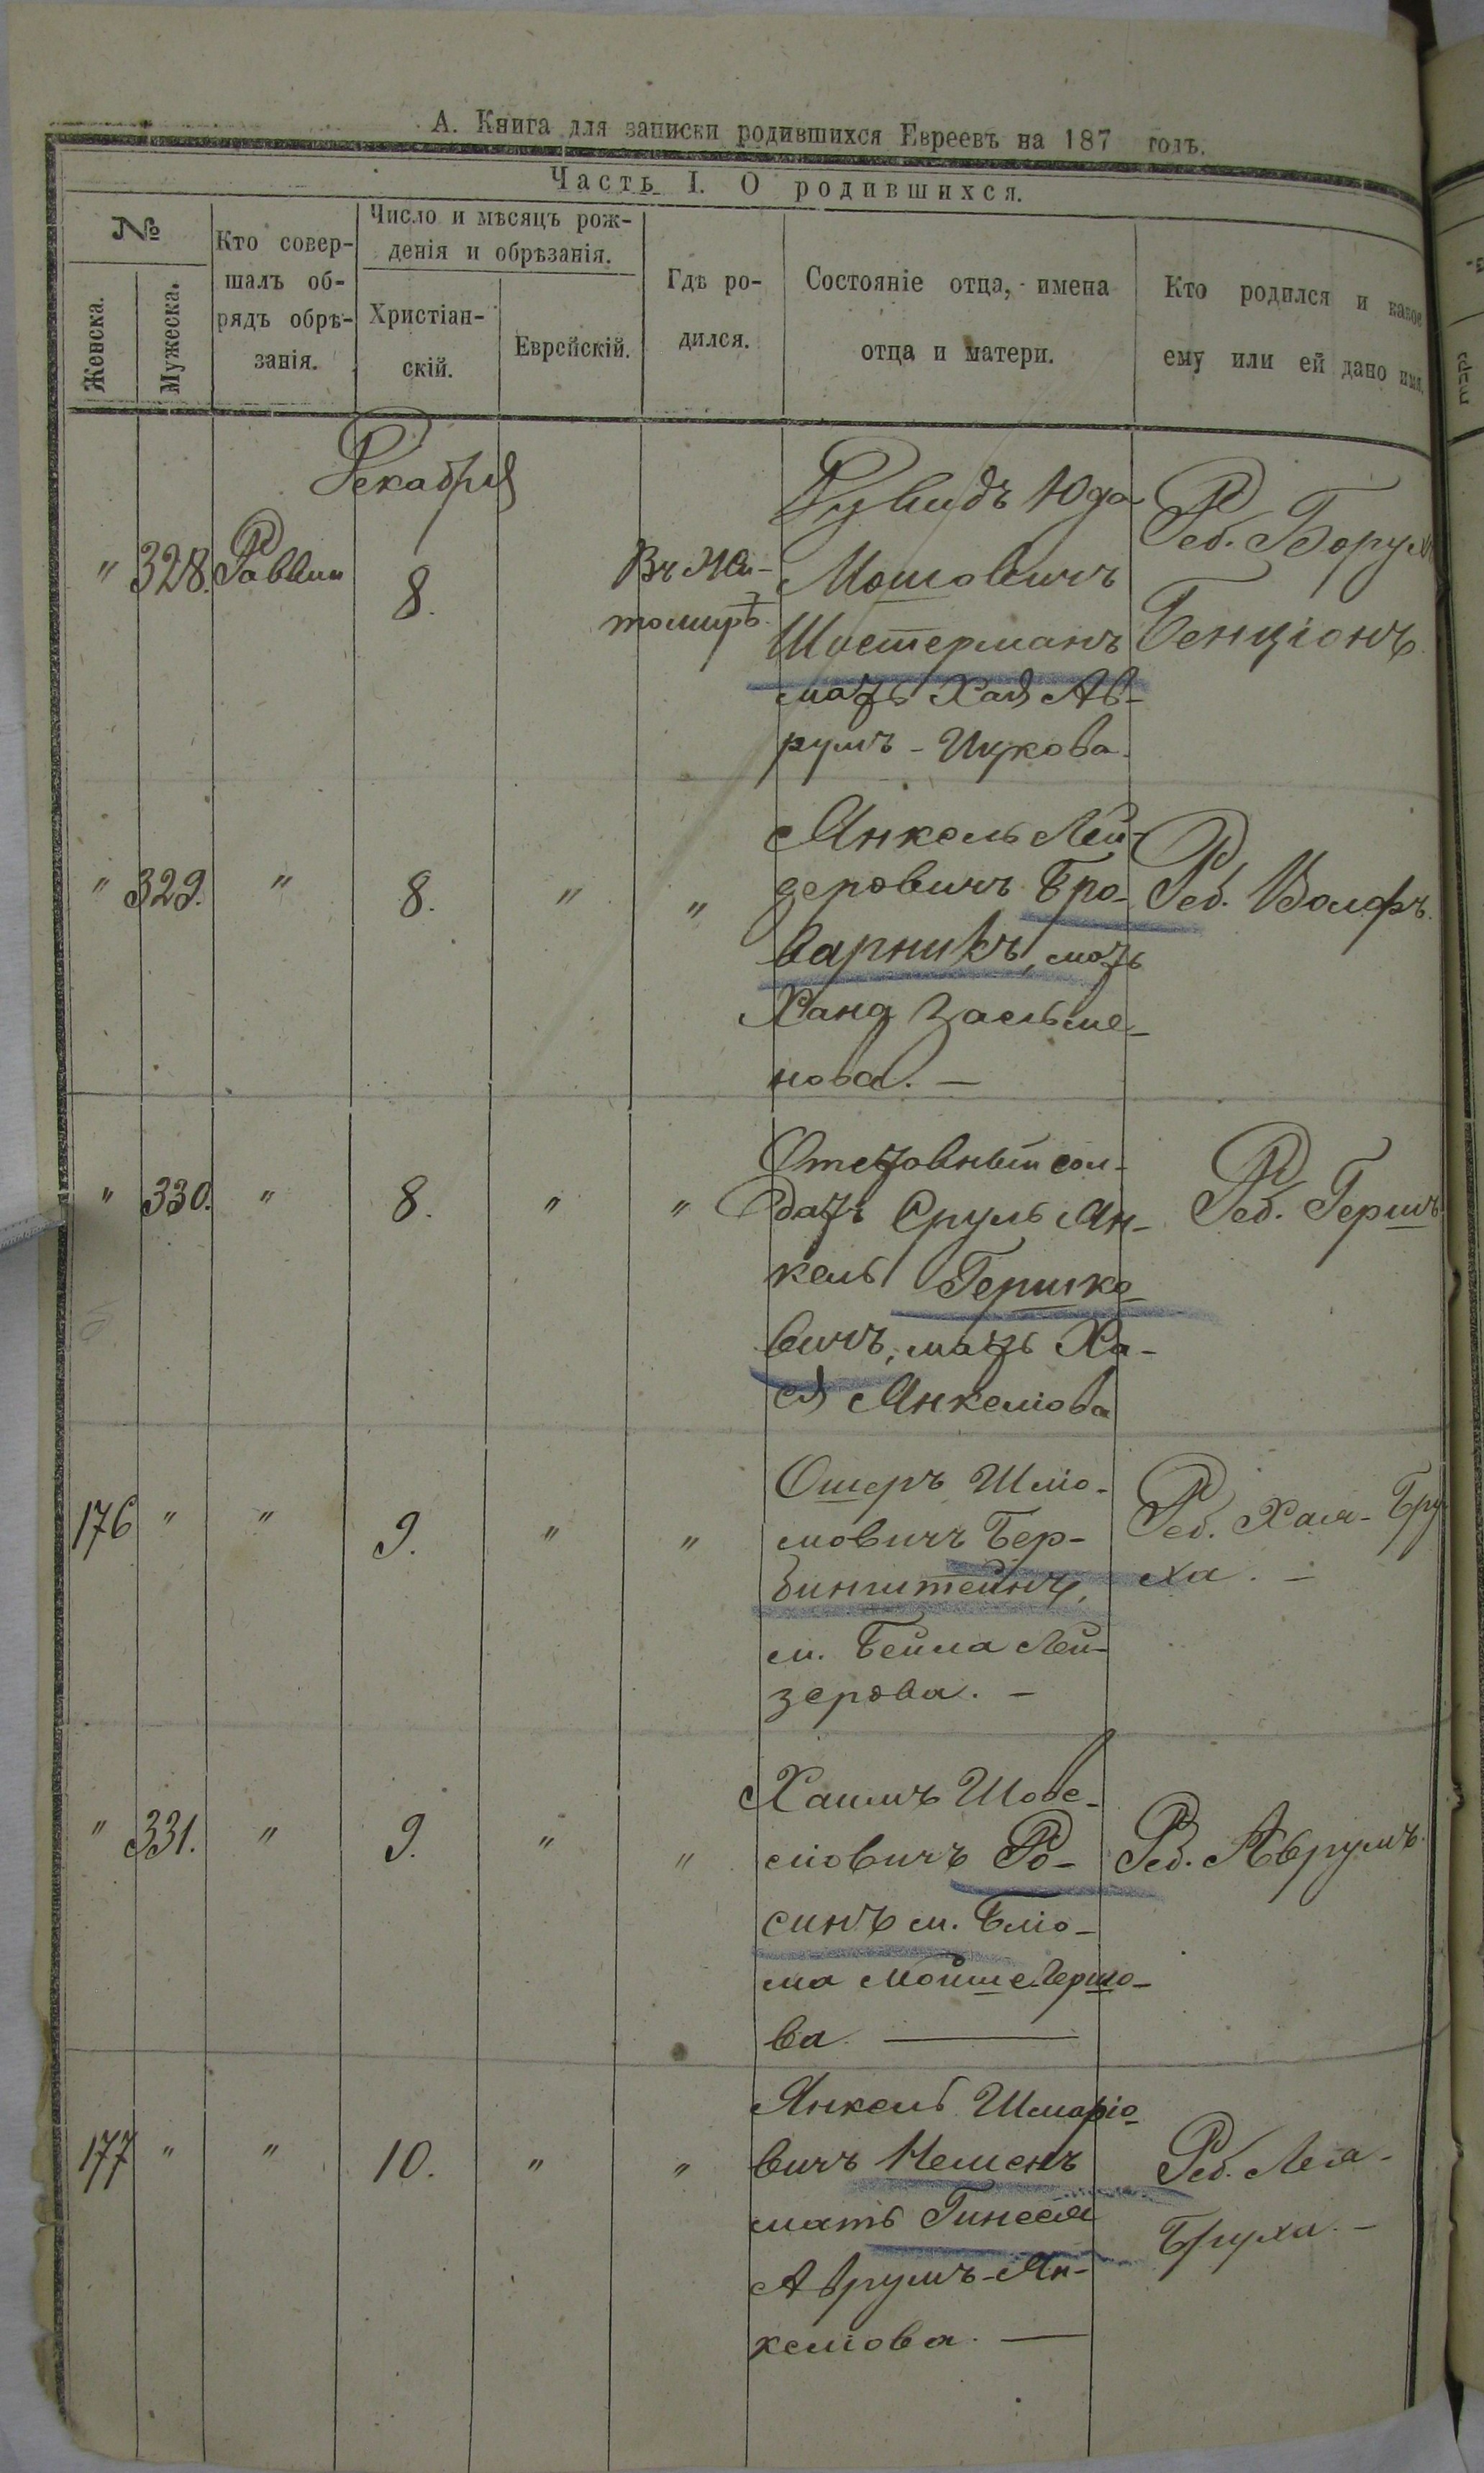 А. Книга для записки родившихся Евреевъ на 187 годъ.
Часть I. О родившихся.
№
Женска.
Мужеска.
Кто совер-
шалъ об-
рядъ обрѣ-
занія.
Число и мѣсяцъ рож-
денія и обрѣзанія.
Христіан-
скій.
Еврейскій.
Гдѣ ро-
дился.
Состояніе отца, имена
отца и матери.
Кто родился и какое
ему или ей дано имя.
Декабря
" 328. Раввин 8. Въ Жи-
томирѣ.
Дувидъ Юда
Мошовичъ
Шостерманъ
мать Хая Ав-
румъ-Ицкова.
Реб. Борухъ
Бенціонъ.
" 329. " 8. " "
Янкель Лей-
зеровичъ Бро-
варникъ, мать
Хана Зельме-
нова. —
Реб. Волфъ.
" 330. " 8. " "
Отставный сол-
датъ Сруль Ян-
кель Гершко-
вичъ, мать Ха-
я Янкелiова
Реб. Гершъ
176 " " 9. " "
Ошеръ Шліо-
мовичъ Бер-
зинштейнъ,
м. Бейла Лей-
зерова. —
Реб. Хая-Бру
ха. —
" 331. " 9. " "
Хаимъ Шове-
ліовичъ Ро-
синъ м. Бліо-
ма Мойше Гершо-
ва —
Реб. Аврумъ.
177 " " 10. " "
Янкель Шмаріо-
вичъ Неменъ
мать Гинесея
Аврумъ-Ян-
келіова. —
Реб. Лея-
Бруха. —